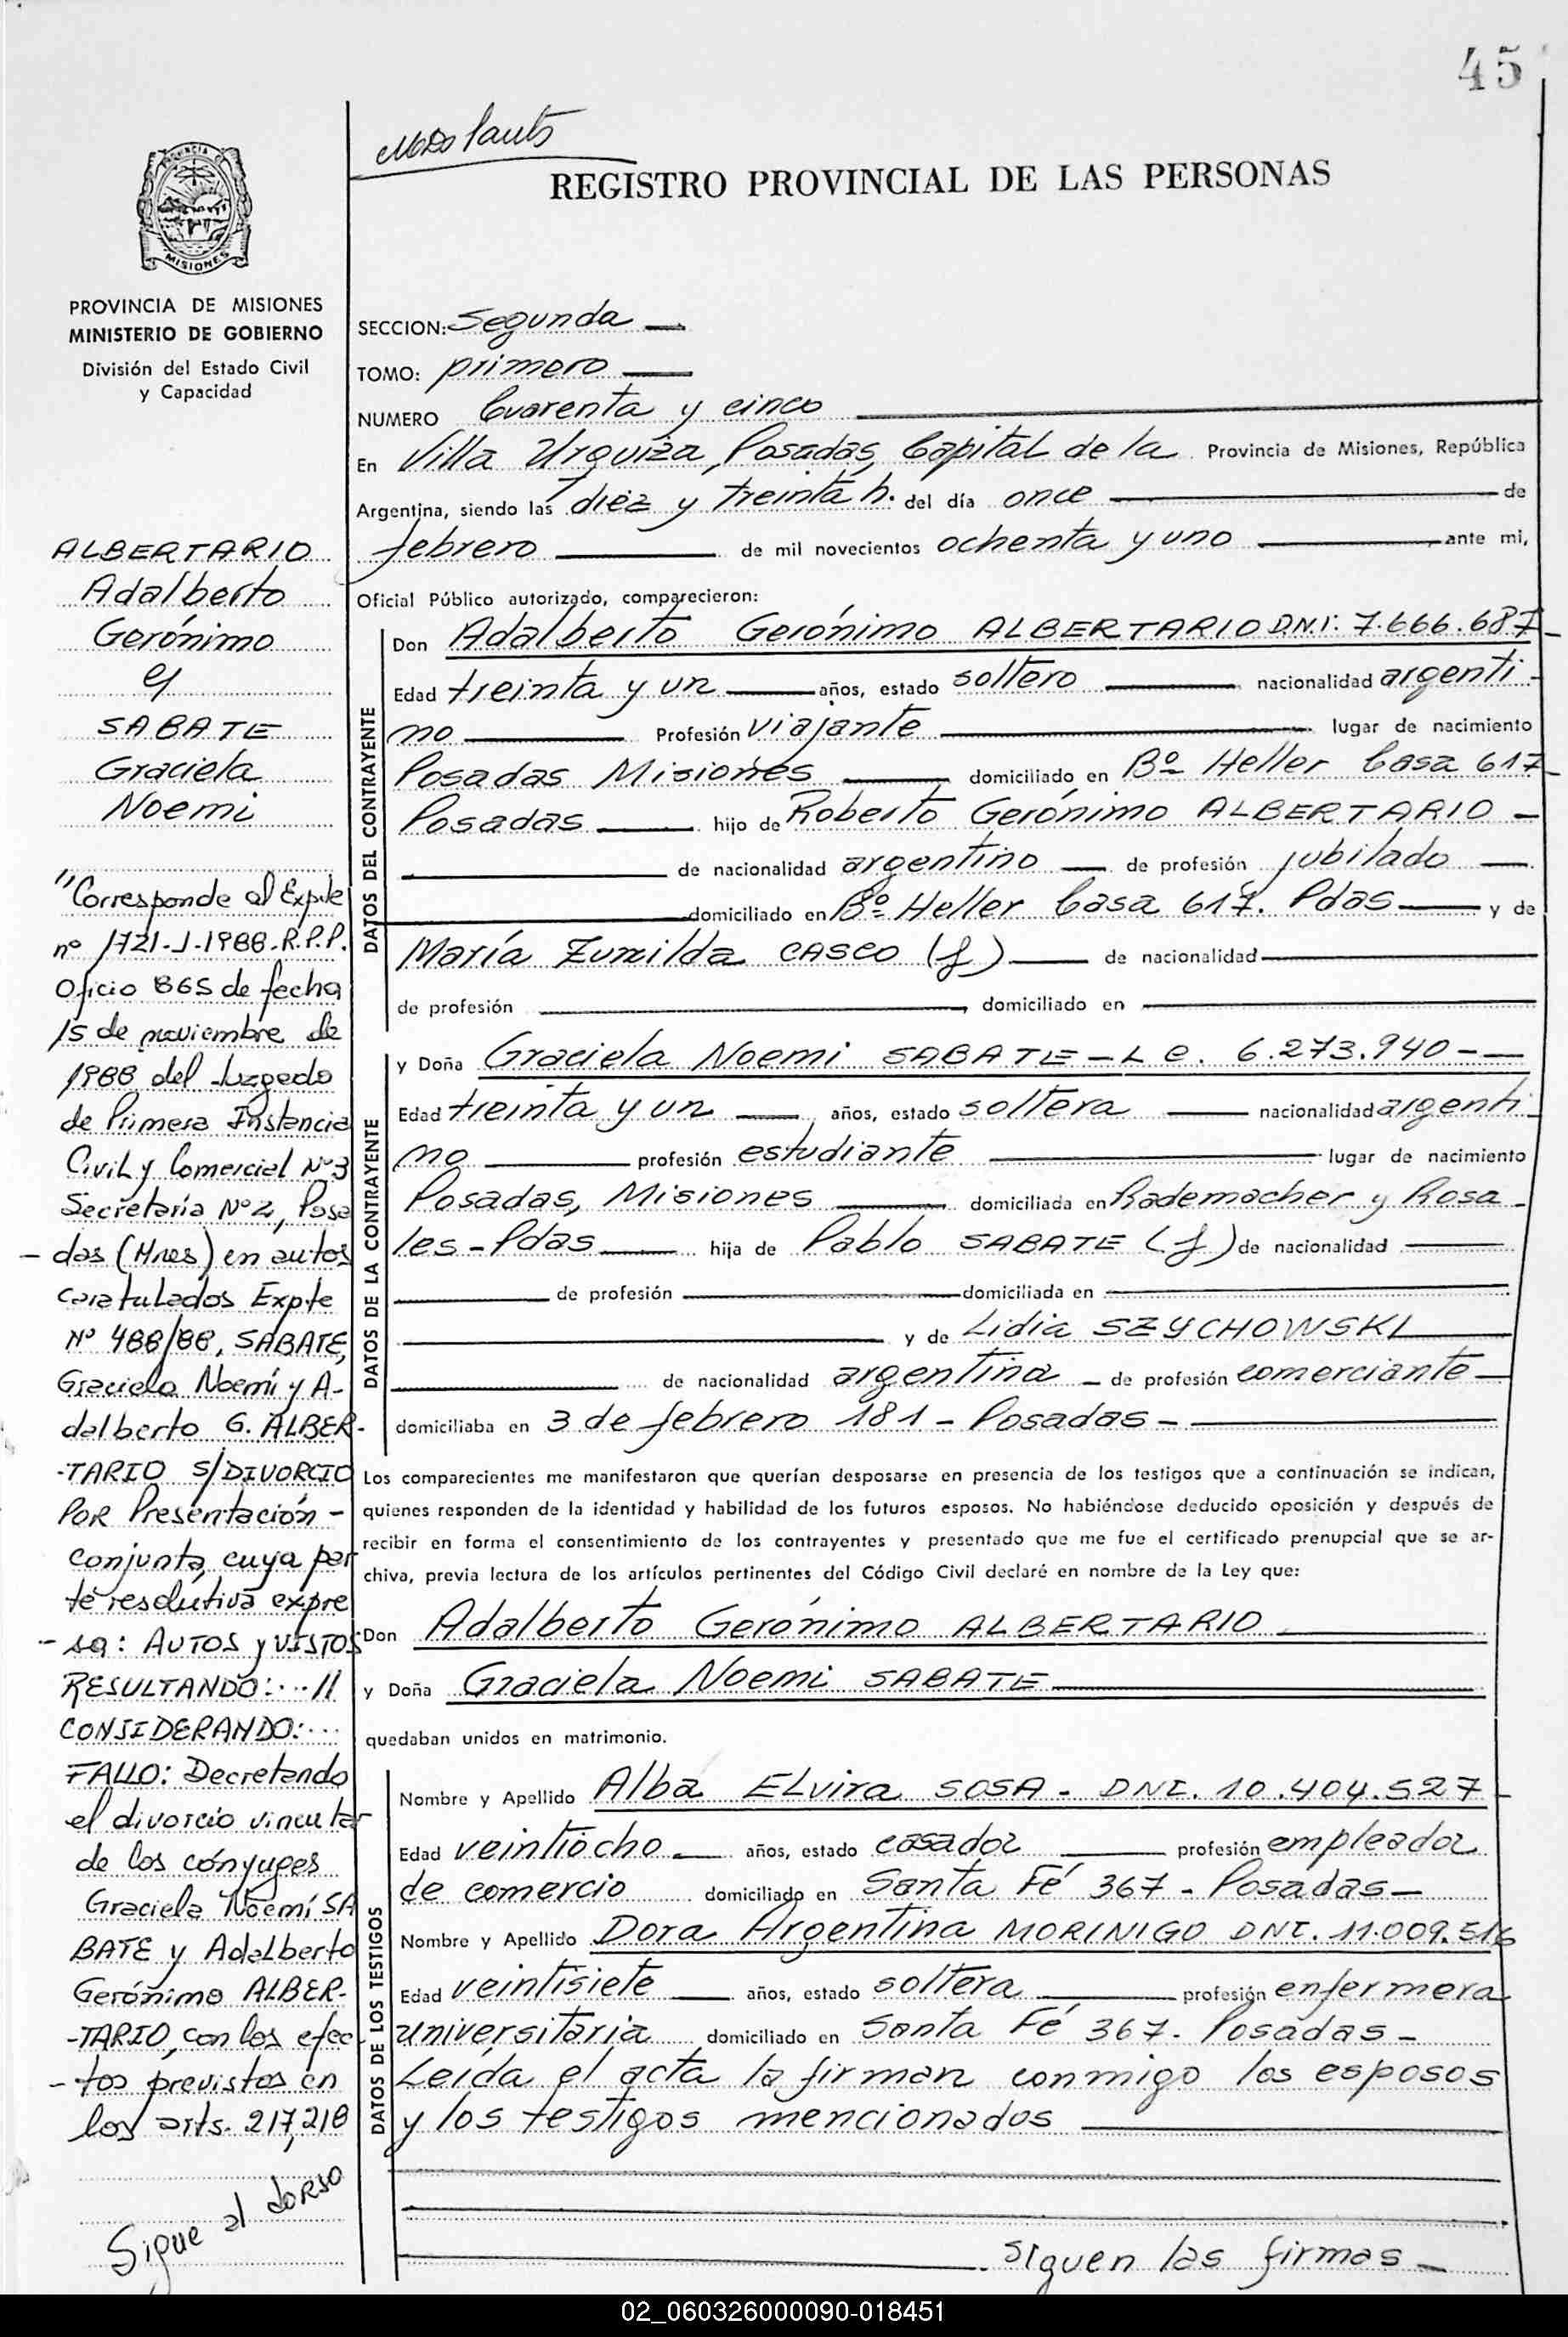 45
REGISTRO PROVINCIAL DE LAS PERSONAS
PROVINCIA DE MISIONES
MINISTERIO DE GOBIERNO
División del Estado Civil
y Capacidad
ALBERTARIO
Adalberto
Gerónimo
y
SABATE
Graciela
Noemi
"Corresponde al Expte
nº 1721-J-1988-R.P.P.
Oficio 865 de fecha
15 de noviembre de
1988 del Juzgado
de Primera Instancia
Civil y Comercial Nº3
Secretaría Nº2, Posa
- das (Mnes) en autos
caratulados Expte
Nº 488/88, SABATE,
Graciela Noemí y A-
dalberto G. ALBER-
-TARIO S/DIVORCIO
POR Presentación -
conjunta, cuya par
te resolutiva expre
- sa: AUTOS y VISTOS
RESULTANDO:...//
CONSIDERANDO:...
FALLO: Decretando
el divorcio vincular
de los cónyuges
Graciela Noemí SA
BATE y Adalberto
Gerónimo ALBER-
-TARIO, con los efec
- tos previstos en
los arts. 217,218
Sigue al dorso
SECCION: Segunda
TOMO: primero
NUMERO Cuarenta y cinco
En Villa Urquiza, Posadas, Capital de la Provincia de Misiones, República
Argentina, siendo las diez y treinta h. del día once de
febrero de mil novecientos ochenta y uno ante mi,
Oficial Público autorizado, comparecieron:
DATOS DEL CONTRAYENTE
Don Adalberto Gerónimo ALBERTARIO D.N.I. 7.666.687
Edad treinta y un años, estado soltero nacionalidad argenti
no Profesión viajante lugar de nacimiento
Posadas Misiones domiciliado en Bº Heller Casa 617
Posadas hijo de Roberto Gerónimo ALBERTARIO -
de nacionalidad argentino de profesión jubilado
domiciliado en Bº Heller Casa 617. Pdas y de
María Zunilda CASCO (f) de nacionalidad
de profesión domiciliado en
DATOS DE LA CONTRAYENTE
y Doña Graciela Noemi SABATE - L C. 6.273.940 -
Edad treinta y un años, estado soltera nacionalidad argenti
na profesión estudiante lugar de nacimiento
Posadas, Misiones domiciliada en Rademacher y Rosa
les - Pdas hija de Pablo SABATE (f) de nacionalidad
de profesión domiciliada en
y de Lidia SZYCHOWSKI
de nacionalidad argentina - de profesión comerciante
domiciliaba en 3 de febrero 181 - Posadas -
Los comparecientes me manifestaron que querían desposarse en presencia de los testigos que a continuación se indican,
quienes responden de la identidad y habilidad de los futuros esposos. No habiéndose deducido oposición y después de
recibir en forma el consentimiento de los contrayentes y presentado que me fue el certificado prenupcial que se ar-
chiva, previa lectura de los artículos pertinentes del Código Civil declaré en nombre de la Ley que:
Don Adalberto Gerónimo ALBERTARIO
y Doña Graciela Noemi SABATE
quedaban unidos en matrimonio.
DATOS DE LOS TESTIGOS
Nombre y Apellido Alba ELvira SOSA - DNI. 10.404.527
Edad veintiocho años, estado casada profesión empleada
de comercio domiciliado en Santa Fé 367 - Posadas -
Nombre y Apellido Dora Argentina MORINIGO DNI. 11.009.516
Edad veintisiete años, estado soltera profesión enfermera
universitaria domiciliado en Santa Fé 367. Posadas -
Leída el acta la firman conmigo los esposos
y los testigos mencionados
siguen las firmas -
02_060326000090-018451